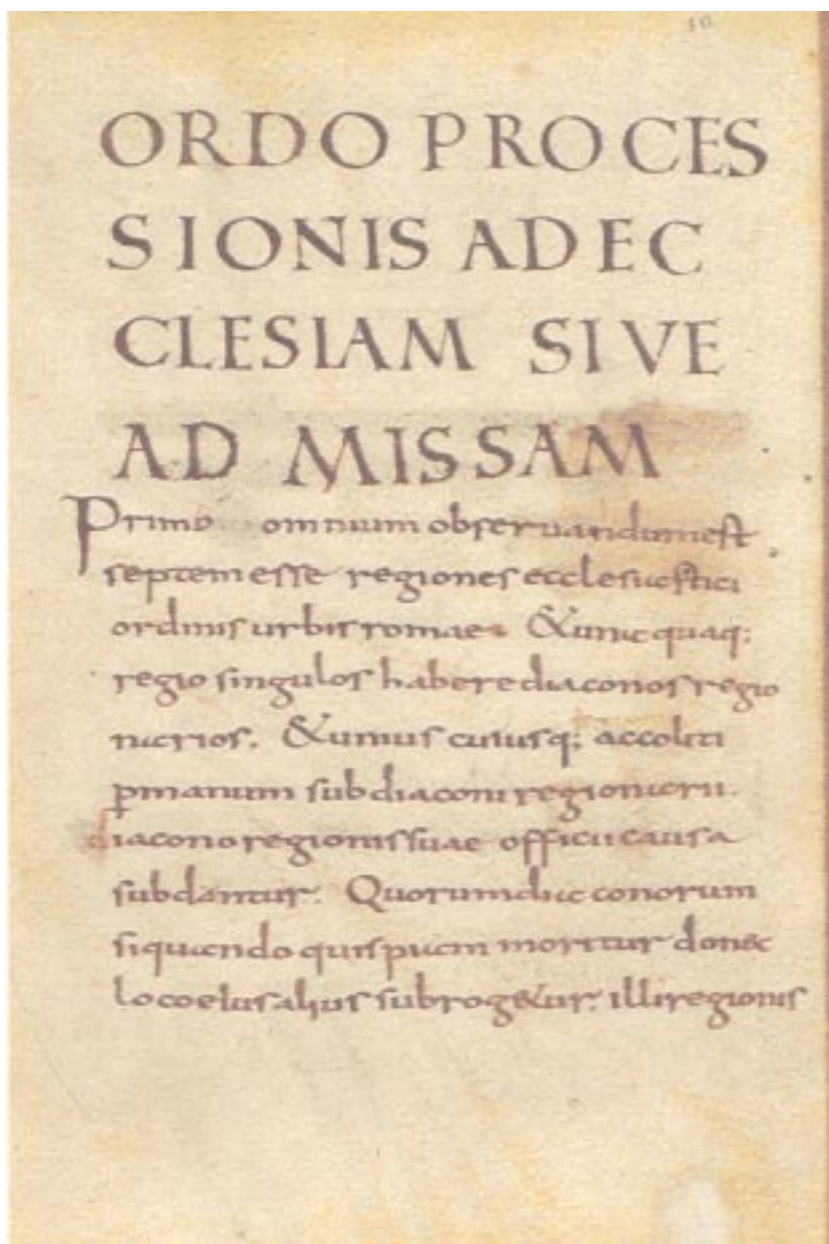 10
ORDO PROCES
SIONIS AD EC
CLESIAM SIVE
AD MISSAM
Primo omnium observandum est
septem esse regiones ecclesiastici
ordinis urbis romae. & unaquaq;
regio singulos habere diaconos regio
narios. & unius cuiusq; accoliti
p̲manum subdiaconi regionarii
diacono regionis suae officii causa
subdantur. Quorum diaconorum
siquando quispiam moritur donec
loco eius alius subrog&ur. illi regionis